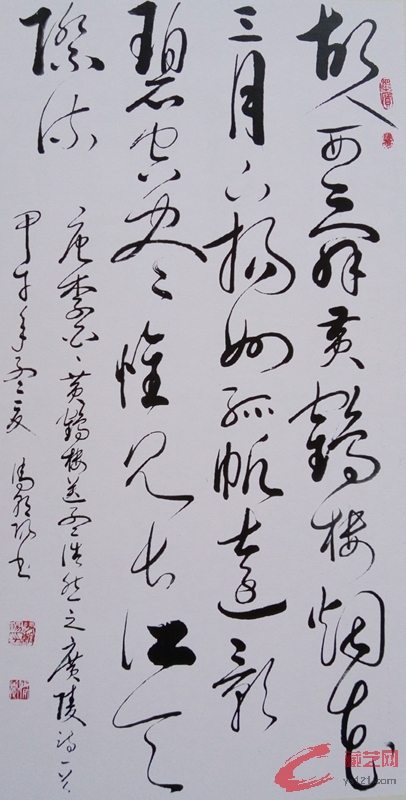 故人西辞黄鹤楼烟花
三月下扬州孤帆远影
碧空尽惟见长江天
际流
唐李白黄鹤楼送孟浩然之廣陵诗一首
甲午年孟夏 书
艺网